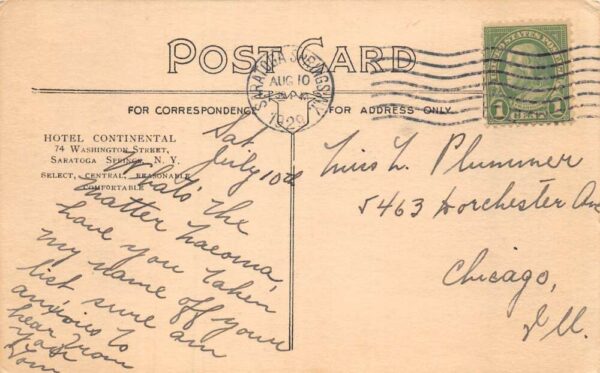 POST CARD
SARATOGA SPRINGS N.Y.
AUG 10
1929
UNITED STATES POSTAGE
1 CENT 1
FOR CORRESPONDENCE
FOR ADDRESS ONLY
HOTEL CONTINENTAL
74 WASHINGTON STREET,
SARATOGA SPRINGS, N. Y.
SELECT, CENTRAL, REASONABLE
COMFORTABLE
Sat.
July 10th
What's the
matter
have you taken
my name off your
list sure am
anxious to
hear from
Miss L. Plummer
5463 Dorchester Ave
Chicago,
Ill.